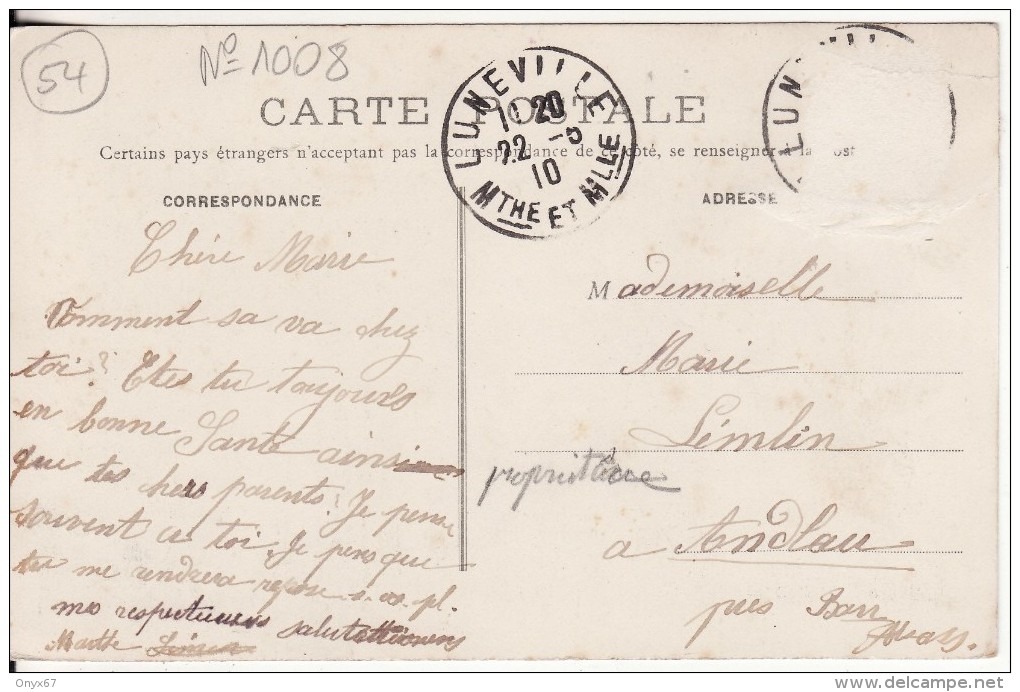 54
Nº 1008
CARTE POSTALE
LUNEVILLE
1 20
22 -3
10
MTHE ET MLLE
LUN
Certains pays étrangers n'acceptant pas la correspondance de ce côté, se renseigner à la
CORRESPONDANCE
ADRESSE
Chère Marie
Comment sa va chez
toi? Etes tu toujours
en bonne Santé ainsi
que tes chers parents. Je pense
souvent a toi. Je pens que
tu me rendera repon s. v. pl.
mes respectueux salutations
Marthe
Mademoiselle
Marie
Lémlin
propriétaire
a Andlau
pres Barr
Alsass.
Onyx67
www.delcampe.net